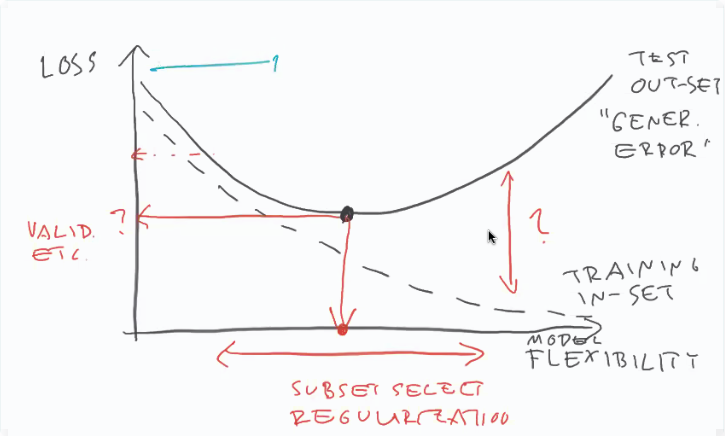 LOSS
TEST
OUT-SET
"GENER.
ERROR"
VALID.
ETC.
?
?
TRAINING
IN-SET
MODEL
FLEXIBILITY
SUBSET SELECT
REGULARIZATION